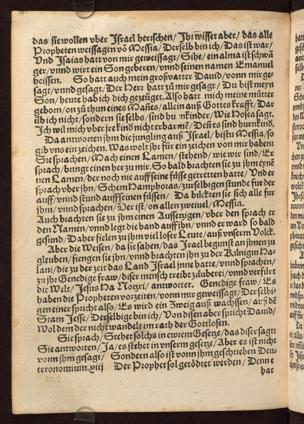 das sie wollen vber Israel herschen / Ihr wisset aber / das alle
Propheten weissagen võ Messia / Derselb bin ich / Das ist war /
Vnd Isaias hatt von mir geweissagt / Sihe / ein alma ist schwã
ger / vnnd wirt ein Son geberen / vnnd seinen namen Emanuel
heissen. So hatt auch mein großvatter Dauid / vonn mir ge-
sagt / vnnd gesagt / Der Herr hatt zů mir gesagt / Du bist meyn
Son / heute hab ich dich gezüget. Also hatt mich meine můtter
geborn / on zů thun eines Mañes / Allein aus Gottes krafft. Dar
üb ich nicht / sondern sie selbs / sind hůrkinder / Wie Hosea sagt.
Ich wil mich vber jre kind nicht erbarmẽ / Deñ es sind hurnkind.
Da antworten jhm die jungling auß Israel / bistu Messia / so
gib vns ein zeichen. Was wolt jhr für ein zeichen von mir haben
Sie sprachen / Mach einen Lamen / stehend / wie wir sind / Er
sprach / bringt einen her zu mir. So bald brachten sie zu jhm eyne
nen Lamen / der noch nie auff seine füsse getretten hatte / Vnd er
sprach vber jhn / Schem Hamphoras / zur selbigen stunde fur der
auff / vnnd stund auff seinen füssen. Da bückten sie sich alle fur
jhm / vnnd sprachen / Der ist / on allen zweiuel / Messia.
Auch brachten sie zu jhm einen Aussetzigen / vber den sprach er
den Namen / vnnd legt die hand auff jhn / vnnd er ward so bald
gesund / Daher fielen zu jhm viel loser Leute / aus vnserm Volck.
Aber die Weisen / da sie sahen / das Israel begunst an jhnen zu
gleuben / fiengen sie jhn / vnnd brachten jhn zu der Künigin He-
lani / die zu der zeit das Land Israel jnne hatte / vnnd sprachen /
zu jhr Genedige fraw / diser mensch treibt zäuberei / vnnd verfurt
die Welt / Jesus Ha Notzri / antwortet. Genedige fraw / Es
haben die Propheten vorzeiten / vonn mir geweissagt / Der selbi-
gen einer spricht also / Es wird ein Zweig auff wachssen / auß dẽ
Stam Jesse / Derselbige bin ich / Von disen aber spricht Dauid /
Wol dem der nicht wandelt im rath der Gottlosen.
Sie sprach / Stehet solchs in ewrem Gesetze / das diser sagt
Sie antworten / Ja / es stehet in vnserm gesetze / Aber es ist nicht
vonn jhm gesagt / Sondern also ist vonn jhm geschriben Deu
teronomium. xiij Der Prophet sol getödtet werden / Denn e
hat